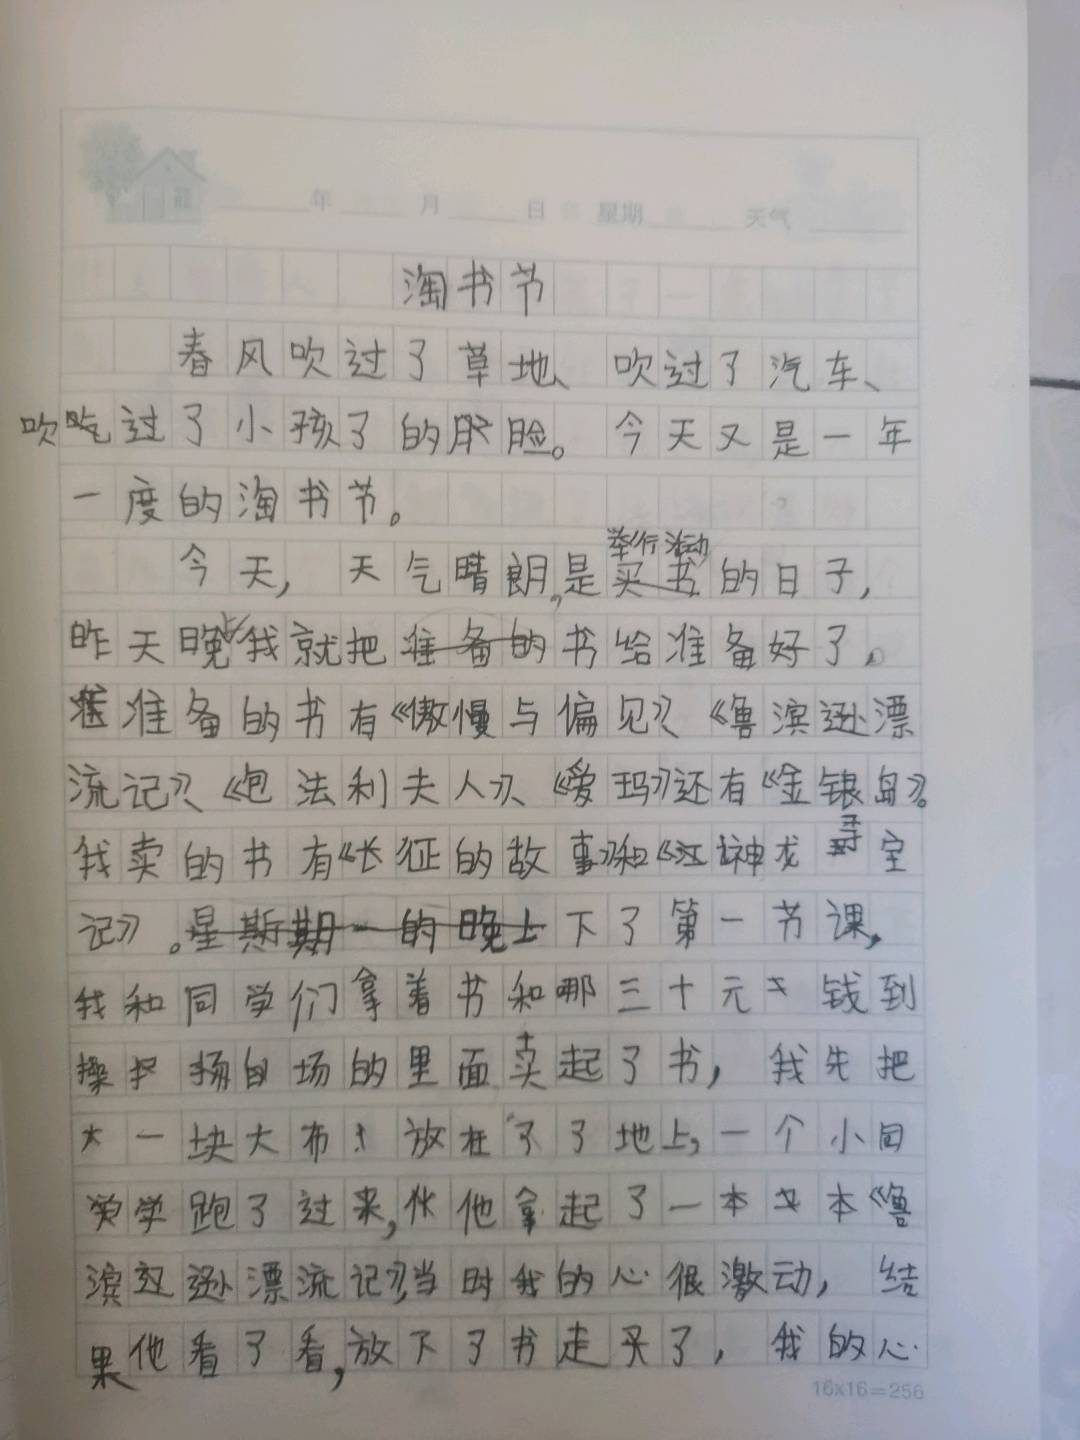 年 月 日 星期 天气
淘书节
春风吹过了草地、吹过了汽车、
吹吃过了小孩了的脸。今天又是一年
一度的淘书节。
今天，天气晴朗，是举行活动买书的日子，
昨天晚上我就把准备的书给准备好了。
准备的书有《傲慢与偏见》《鲁滨逊漂
流记》、《包法利夫人》、《爱玛》还有《金银岛》。
我卖的书有《长征的故事》和《江神龙寻宝
记》。星斯期一的晚上下了第一节课，
我和同学们拿着书和哪三十元钱到
操扬场的里面卖起了书，我先把
大一块大布放在了了地上，一个小同
学跑了过来，他拿起了一本本《鲁
滨逊漂流记》，当时我的心很激动，结
果他看了看，放下了书走买了，我的心
16x16=256